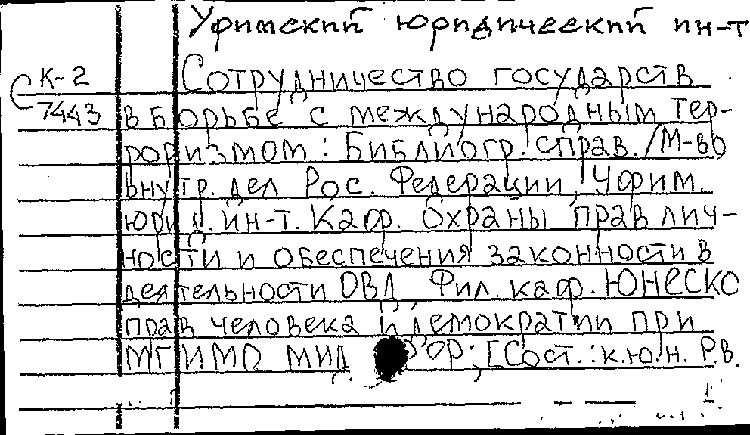 Уфимский юридический ин-т
К-2 Сотрудничество государств
7443 в борьбе с международным тер-
роризмом: Библиогр. справ. / М-во
внутр. дел Рос. Федерации, Уфим.
юрид. ин-т. Каф. Охраны прав лич-
ности и обеспечения законности в
деятельности ОВД, Фил. каф. ЮНЕСКО
прав человека и демократии при
МГИМО МИД РФ; [Сост.: к.ю.н. Р.В.